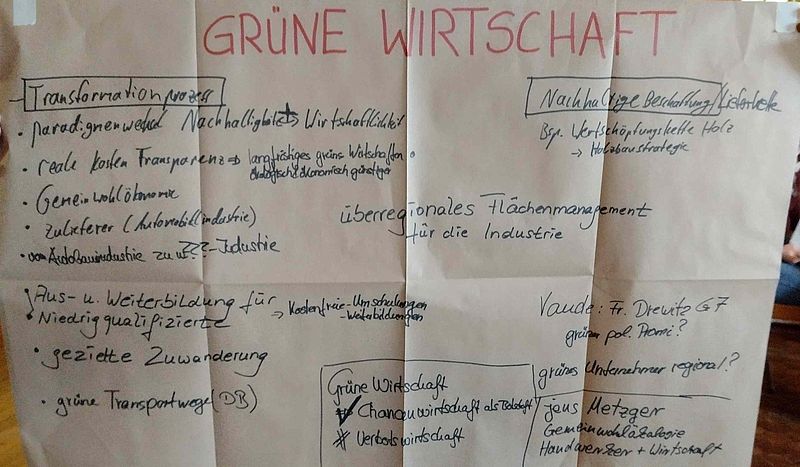 GRÜNE WIRTSCHAFT
Transformationprozess
• paradigmenwechsel Nachhaltigkeit → Wirtschaftlichkeit
• reale Kosten Transparenz ⇒ langfristiges grünes Wirtschaften
ökologisch ökonomisch günstiger
• Gemeinwohlökonomie
• Zulieferer (Automobilindustrie)
• von Autobauindustrie zu ???-Industrie
• Aus- u. Weiterbildung für
• Niedrigqualifizierte
→ Kostenfreie-Umschulungen
-Weiterbildungen
• gezielte Zuwanderung
• grüne Transportwege (DB)
Nachhaltige Beschaffung/Lieferkette
Bsp. Wertschöpfungskette Holz
→ Holzbaustrategie
überregionales Flächenmanagement
für die Industrie
Grüne Wirtschaft
Chancenwirtschaft als
# Verbotswirtschaft
Vaude: Fr. Drewitz G7
grüner pol. Promi?
grünes Unternehmer regional?
Jens Metzger
Handwerker + Wirtschaft